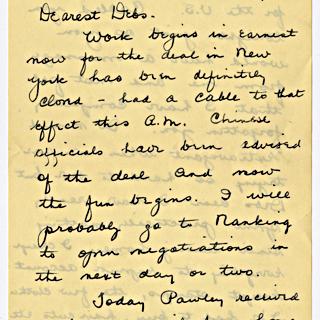 Dearest Debs.
Work begins in earnest
now for the deal in New
York has been definitely
closed - had a cable to that
effect this A.M. Chinese
officials have been advised
of the deal and now
the fun begins. I will
probably go to Nanking
to open negotiations in
the next day or two.
Today Pawley received